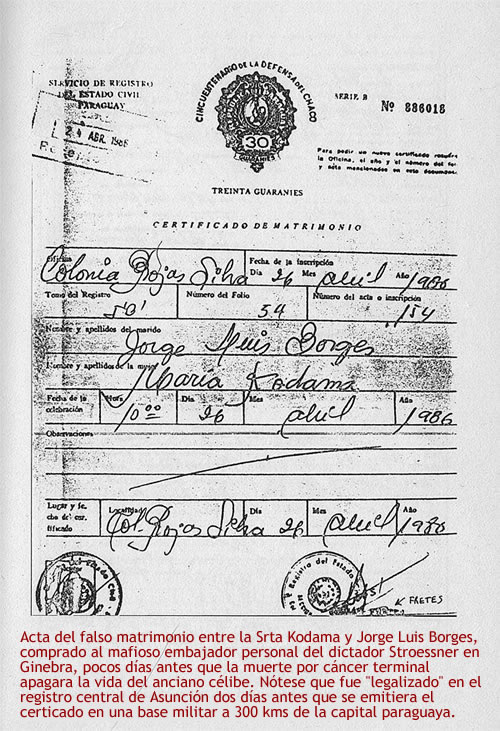 SERVICIO DE REGISTRO
DEL ESTADO CIVIL
PARAGUAY
24 ABR. 1986
CINCUENTENARIO DE LA DEFENSA DEL CHACO
30
GUARANIES
SERIE B
Nº 886018
Para pedir un nuevo certificado
la Oficina, el año y el número del
y acta mencionados en este documento.
TREINTA GUARANIES
CERTIFICADO DE MATRIMONIO
Oficina
Colonia Rojas Silva
Fecha de la inscripción
Día 26 Mes abril Año 1986
Tomo del Registro
Número del Folio
54
Número del acta o inscripción
154
Nombre y apellidos del marido
Jorge Luis Borges
Nombre y apellidos de la mujer
María Kodama
Fecha de la
celebración
Hora
10 00
Día
26
Mes
abril
Año
1986
Observaciones
Lugar y fe-
cha de
tificado
Localidad
Col. Rojas Silva
Día
26
Mes
abril
Año
1986
Registro del Estado
Acta del falso matrimonio entre la Srta Kodama y Jorge Luis Borges,
comprado al mafioso embajador personal del dictador Stroessner en
Ginebra, pocos días antes que la muerte por cáncer terminal
apagara la vida del anciano célibe. Nótese que fue "legalizado" en el
registro central de Asunción dos días antes que se emitiera el
certicado en una base militar a 300 kms de la capital paraguaya.